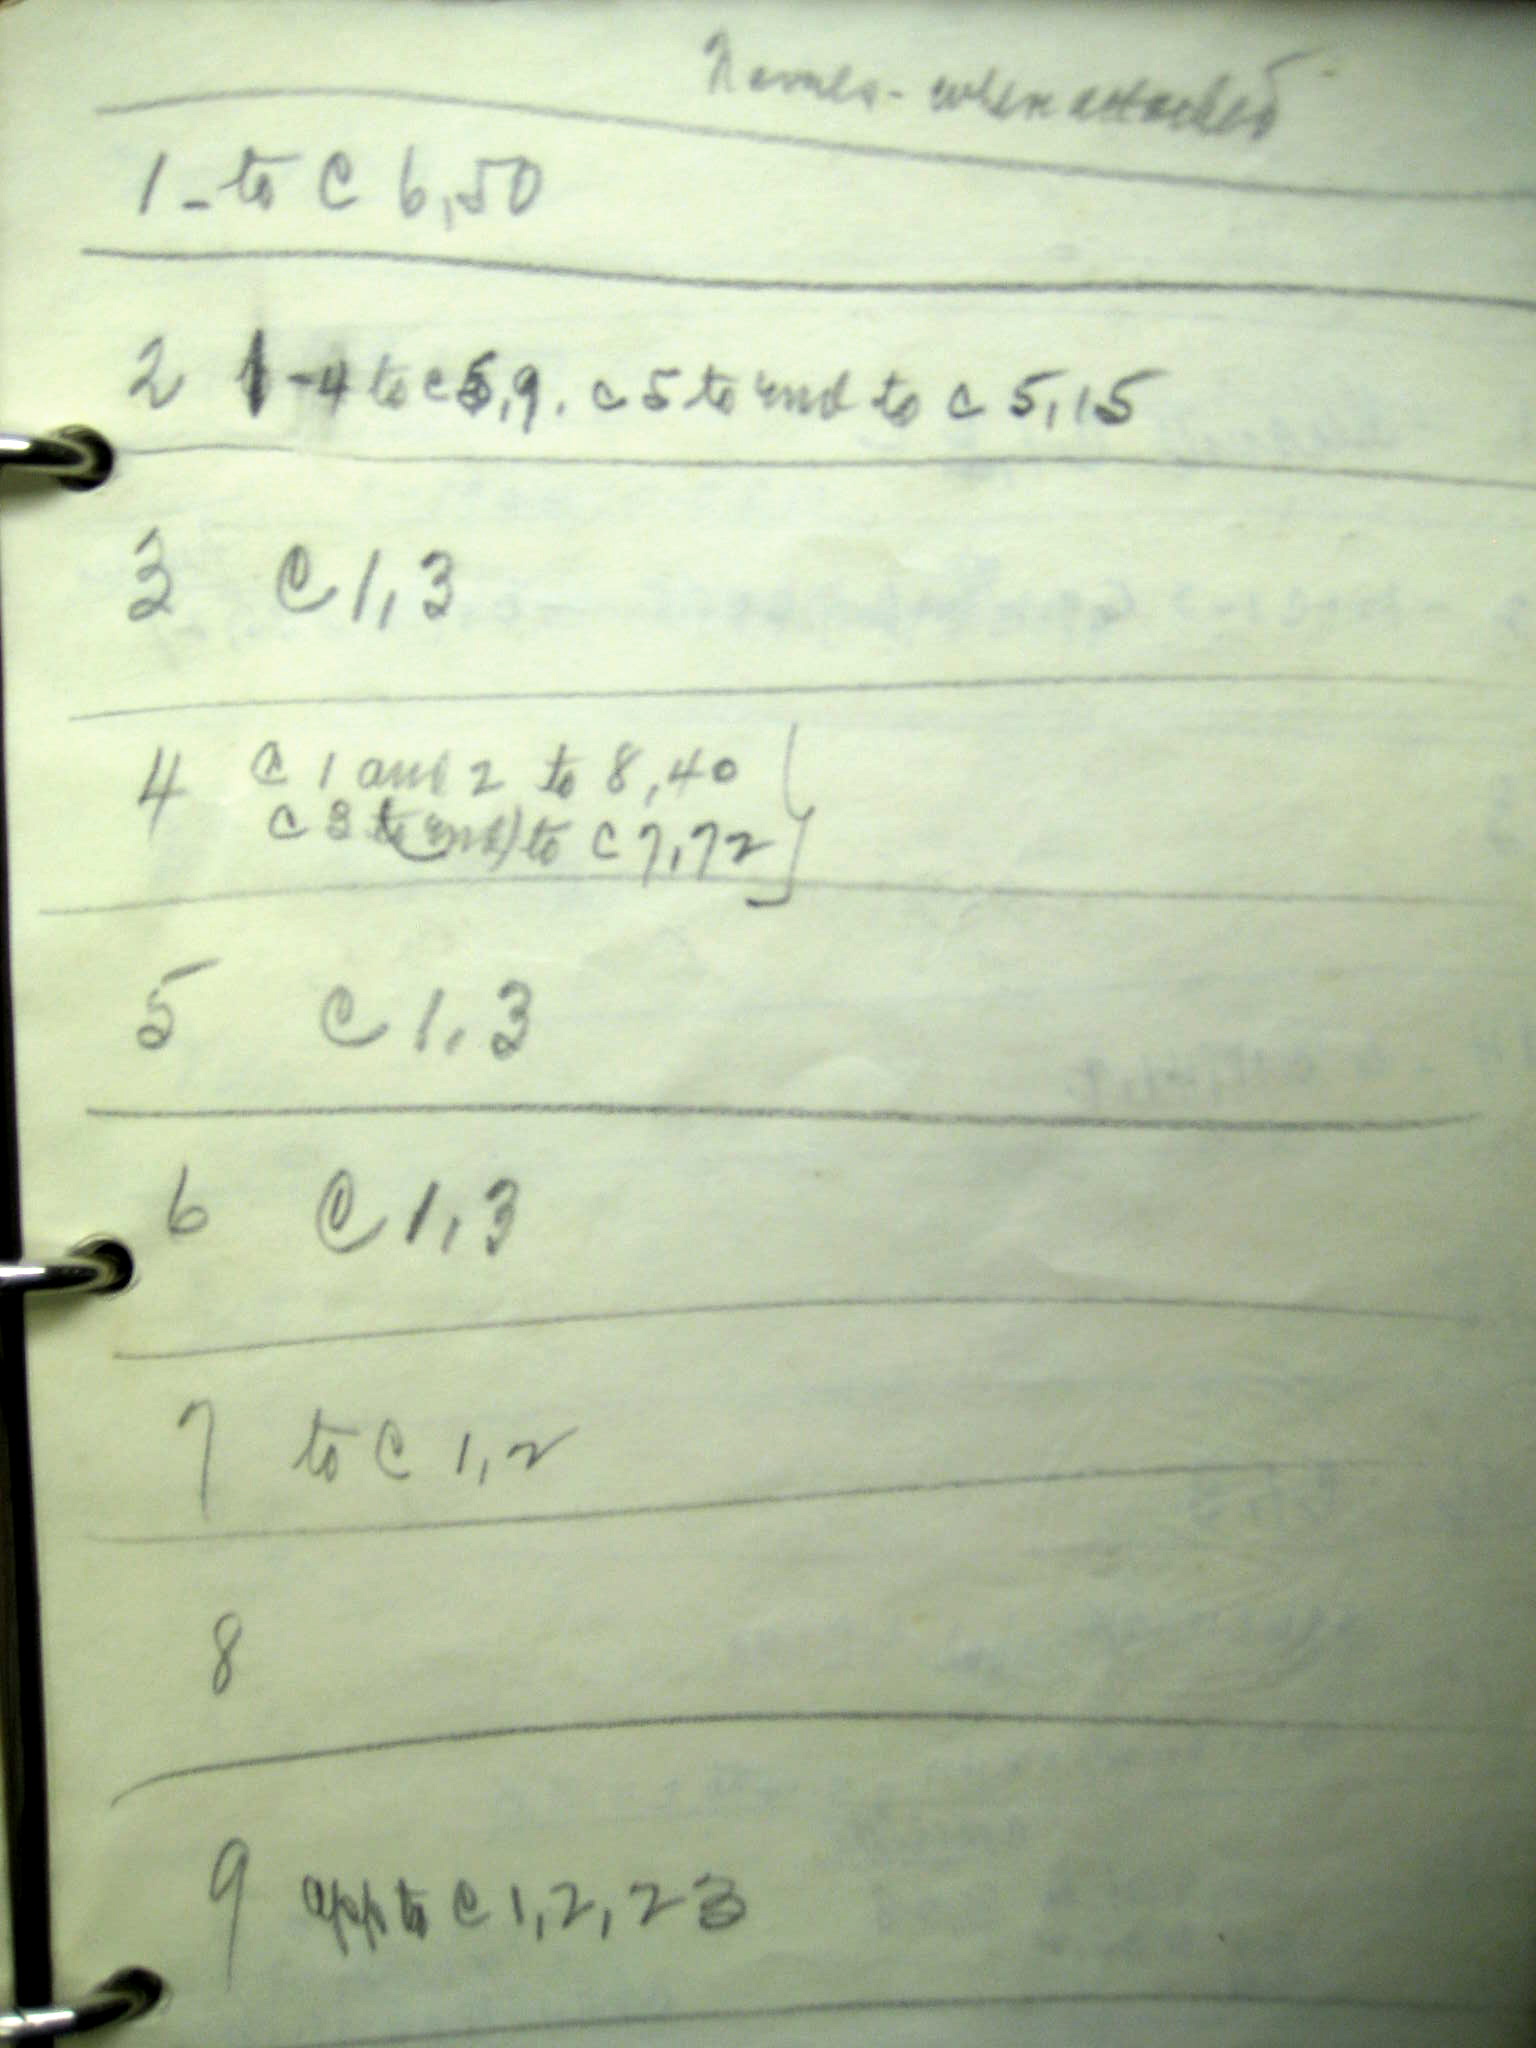 when attached
1 - to C 6,50
2 1-4 to C5,9. C5 to end to C 5,15
3 C 1,3
4 C 1 and 2 to 8,40
C 3 to end) to C 7,72
5 C 1,3
6 C 1,3
7 to C 1,2
8
9 app to C 1,2,23